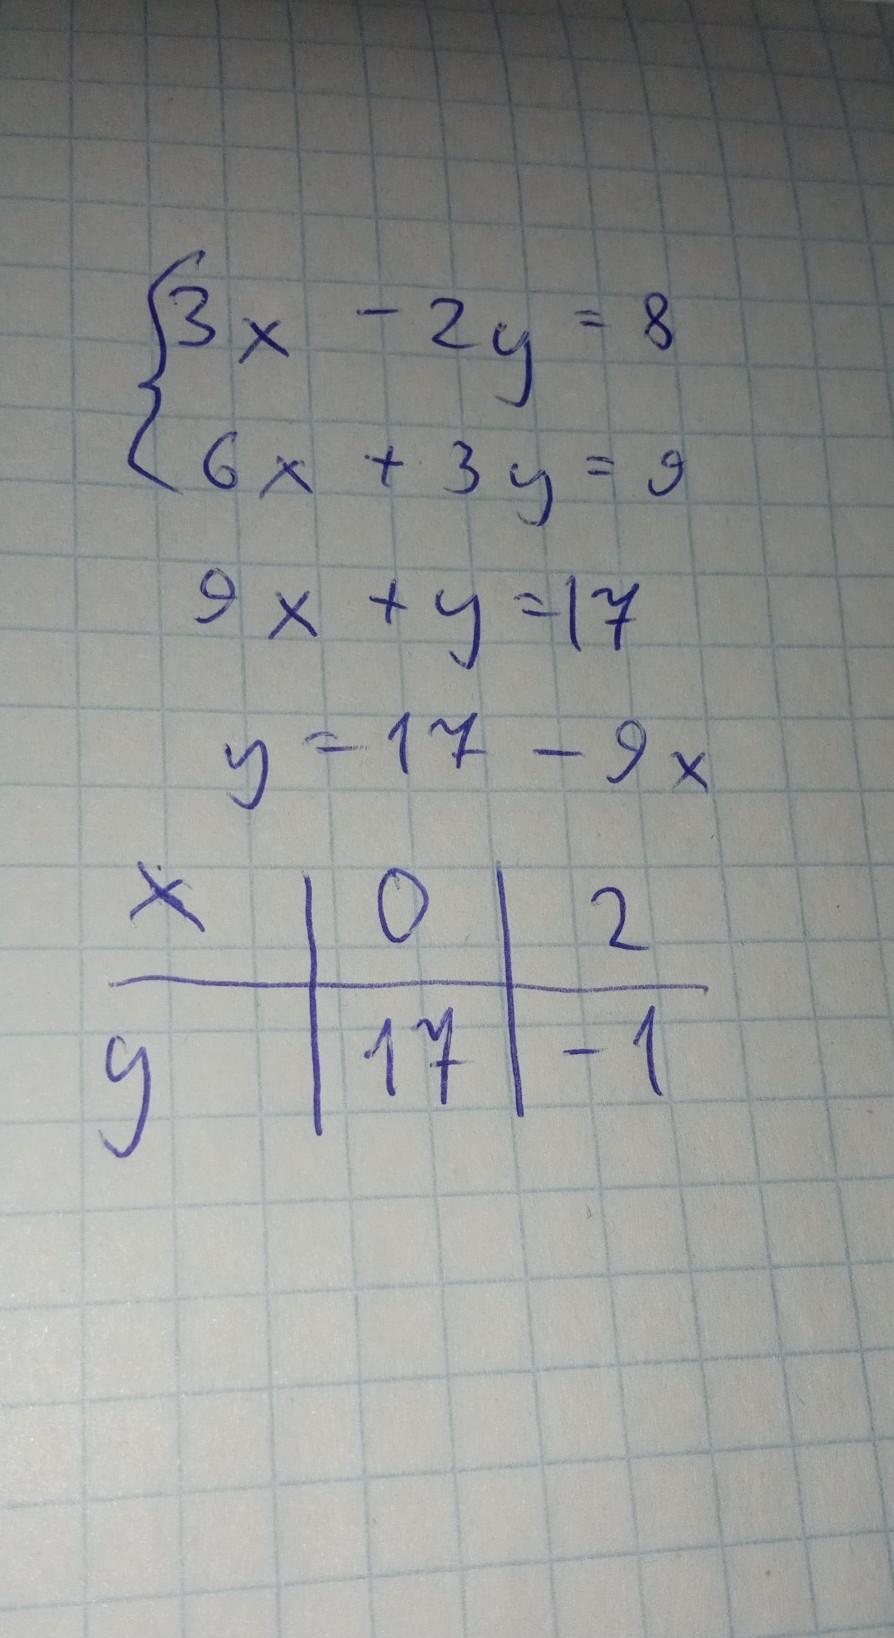 3x - 2y = 8
6x + 3y = 9
9x + y = 17
y = 17 - 9x
x | 0 | 2
y | 17 | -1